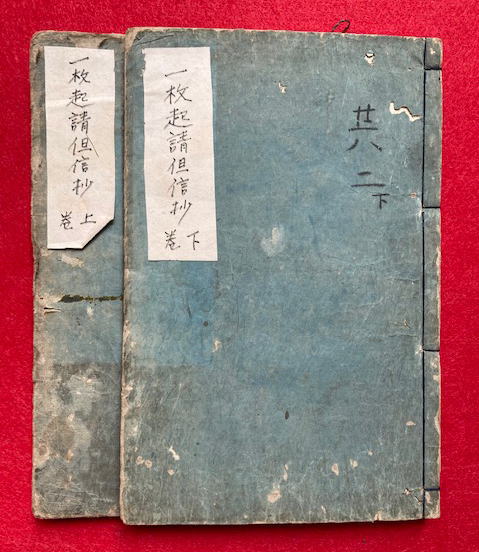 一枚起請但信抄
巻上
一枚起請但信抄
巻下
廿八
二下